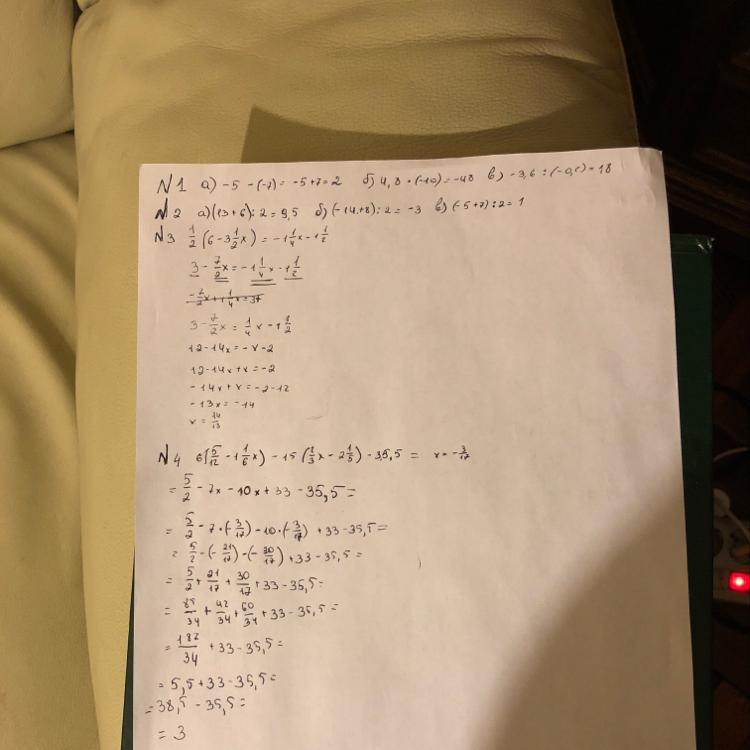 N1 а) -5 -(-7)= -5+7=2 б) 4,8·(-10)=-48 в) -3,6:(-0,2)=18
N2 а)(13+6):2=9,5 б)(-14+8):2=-3 в)(-5+7):2=1
N3 1/2(6-3 1/2x)=-1 1/4x-1 1/2
3-7/2x=-1 1/4x-1 1/2
-7/2x+1 1/4x=
3-7/2x=1/4x-1 1/2
12-14x=-x-2
12-14x+x=-2
-14x+x=-2-12
-13x=-14
x=14/13
N4 6(5/12-1 1/6x)-15(2/3x-2 1/5)-35,5= x=-3/17
=5/2-7x-10x+33-35,5=
=5/2-7·(-3/17)-10·(-3/17)+33-35,5=
=5/2-(-21/17)-(-30/17)+33-35,5=
=5/2+21/17+30/17+33-35,5=
=85/34+42/34+60/34+33-35,5=
=187/34+33-35,5=
=5,5+33-35,5=
=38,5-35,5=
=3